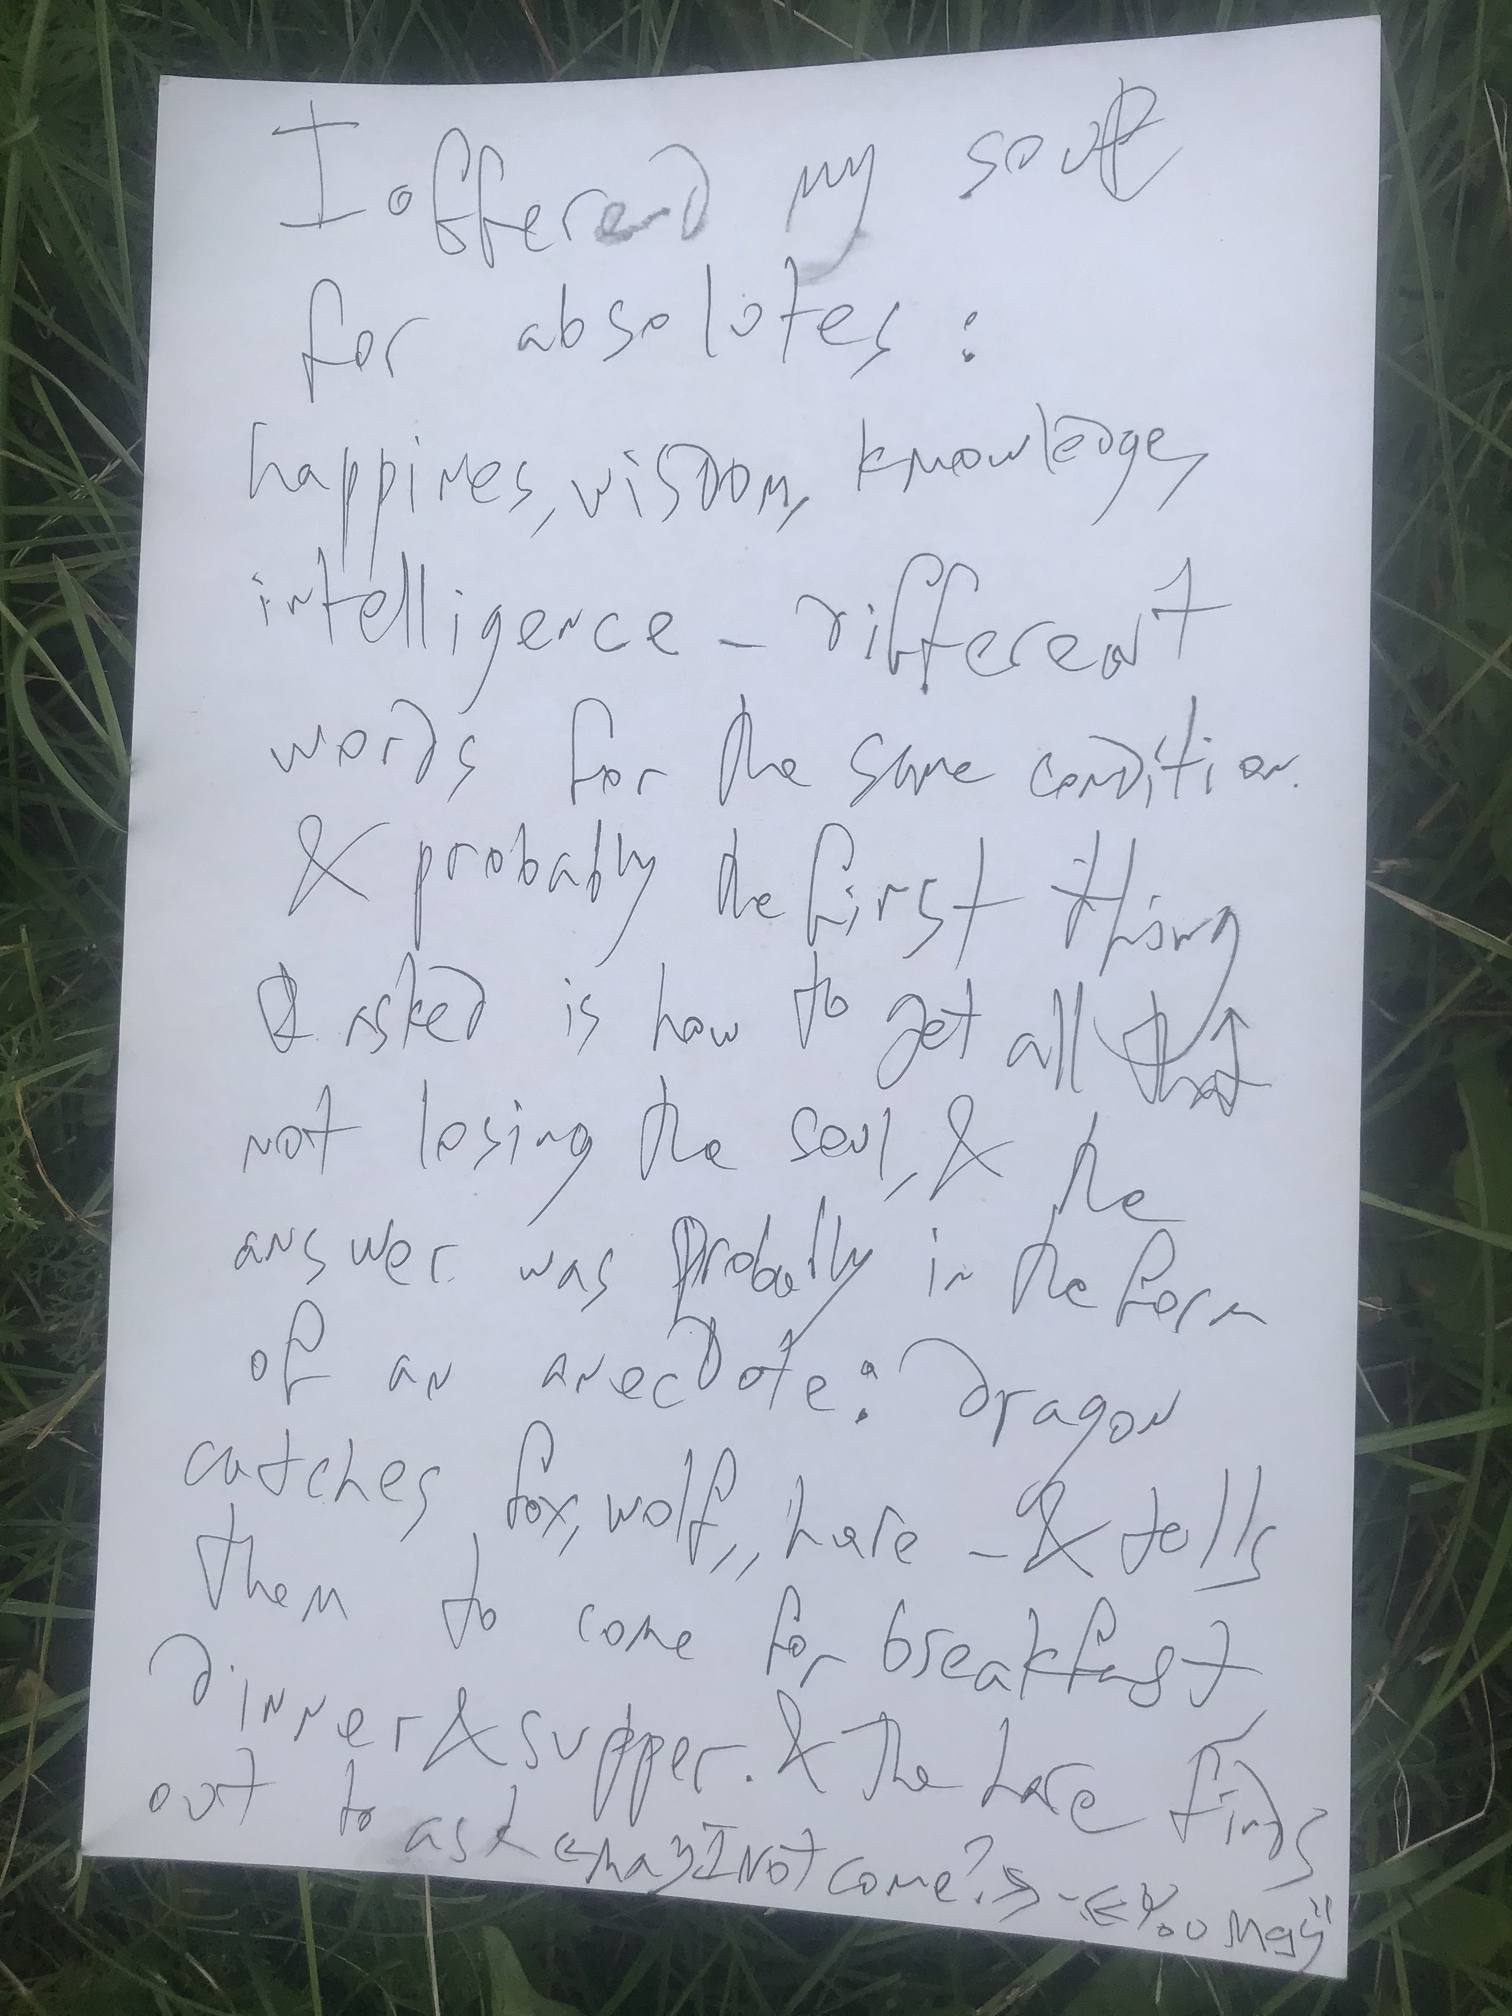 I offered my soul
for absolutes:
happines, wisdom, knowledge,
intelligence – different
words for the same condition.
& probably the first thing
I asked is how to get all that
not losing the soul, & the
answer was probably in the form
of an anecdote: dragon
catches fox, wolf,, hare – & tells
them to come for breakfast
dinner & supper. & the hare finds
out to ask «may I not come?» – «You may"